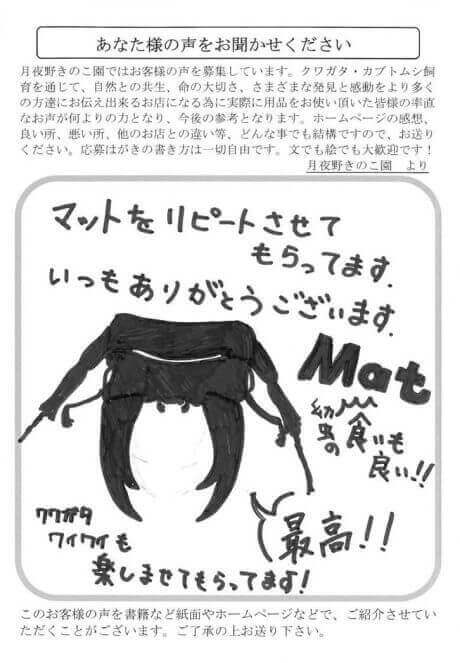 あなた様の声をお聞かせください
月夜野きのこ園ではお客様の声を募集しています。クワガタ・カブトムシ飼
育を通じて、自然との共生、命の大切さ、さまざまな発見と感動をより多く
の方達にお伝え出来るお店になる為に実際に用品をお使い頂いた皆様の率直
なお声が何よりの力となり、今後の参考となります。ホームページの感想、
良い所、悪い所、他のお店との違い等、どんな事でも結構ですので、お送り
ください。応募はがきの書き方は一切自由です。文でも絵でも大歓迎です！
月夜野きのこ園　より
マットをリピートさせて
もらってます.
いつもありがとうございます.
Mat
幼虫の食いも
良い!!
最高!!
クワガタ
ワイワイも
楽しませてもらってます!
このお客様の声を書籍など紙面やホームページなどで、ご紹介させてい
ただくことがございます。ご了承の上お送り下さい。